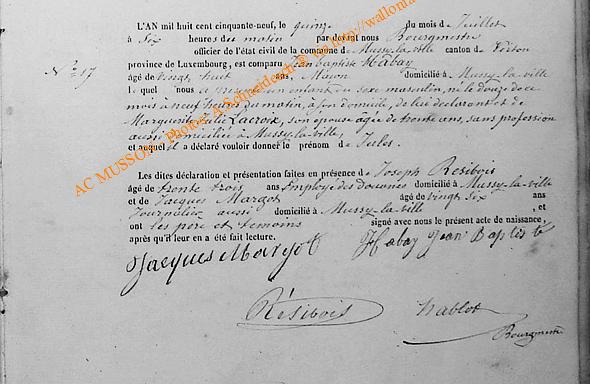 L'AN mil huit cent cinquante-neuf, le quinze du mois de Juillet
à Six heures du matin par devant nous Bourgmestre
officier de l'état civil de la commune de Mussy-la-ville canton de Virton
N° 17
province de Luxembourg, est comparu Jean Baptiste Habay
âgé de vingt huit ans, Maçon domicilié à Mussy-la-ville
lequel nous a un enfant du sexe masculin, né le douze de ce
mois à neuf heures du matin, à son domicile, de lui déclarant et de
Marguerite Julie Lacroix, son épouse agée de trente ans, sans profession
aussi domiciliée à Mussy-la-ville,
et auquel il a déclaré vouloir donner le prénom de Jules.
Les dites déclaration et présentation faites en présence de Joseph Résibois
âgé de trente trois ans Employé des douanes domicilié à Mussy-la-ville
et de Jacques Margot âgé de vingt six ans
Journalier aussi domicilié à Mussy-la-ville, et
ont les père et témoins signé avec nous le présent acte de naissance,
après qu'il leur en a été fait lecture.
Jacques Margot Habay Jean Baptiste
Résibois
Bourgmestre
AC MUSSON, Photos: A. Schneider